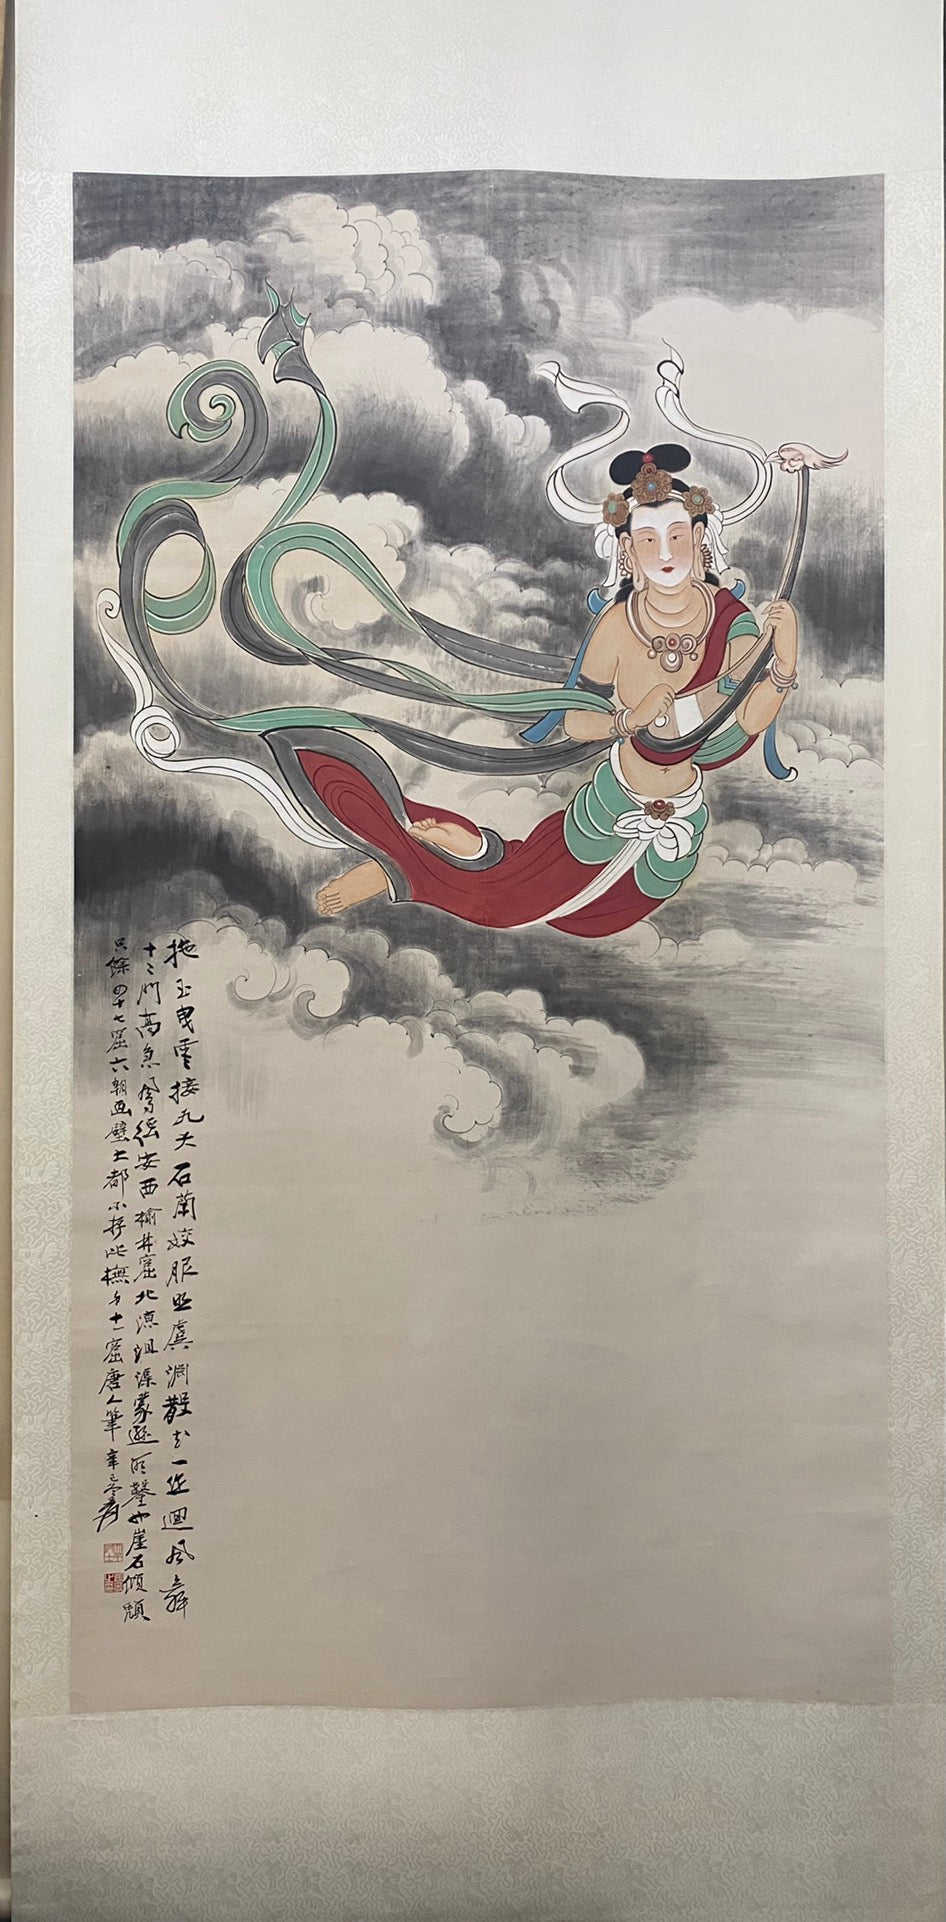 拖玉曳雲接九天石蘭姣服照虞淵散花一迎迴風舞
十二門高急鳳絃安西榆林窟北涼沮渠蒙遜所鑿也崖石傾頹
只餘四十七窟六朝画壁大都不存此橅弟十一窟唐人筆 辛巳冬 爰